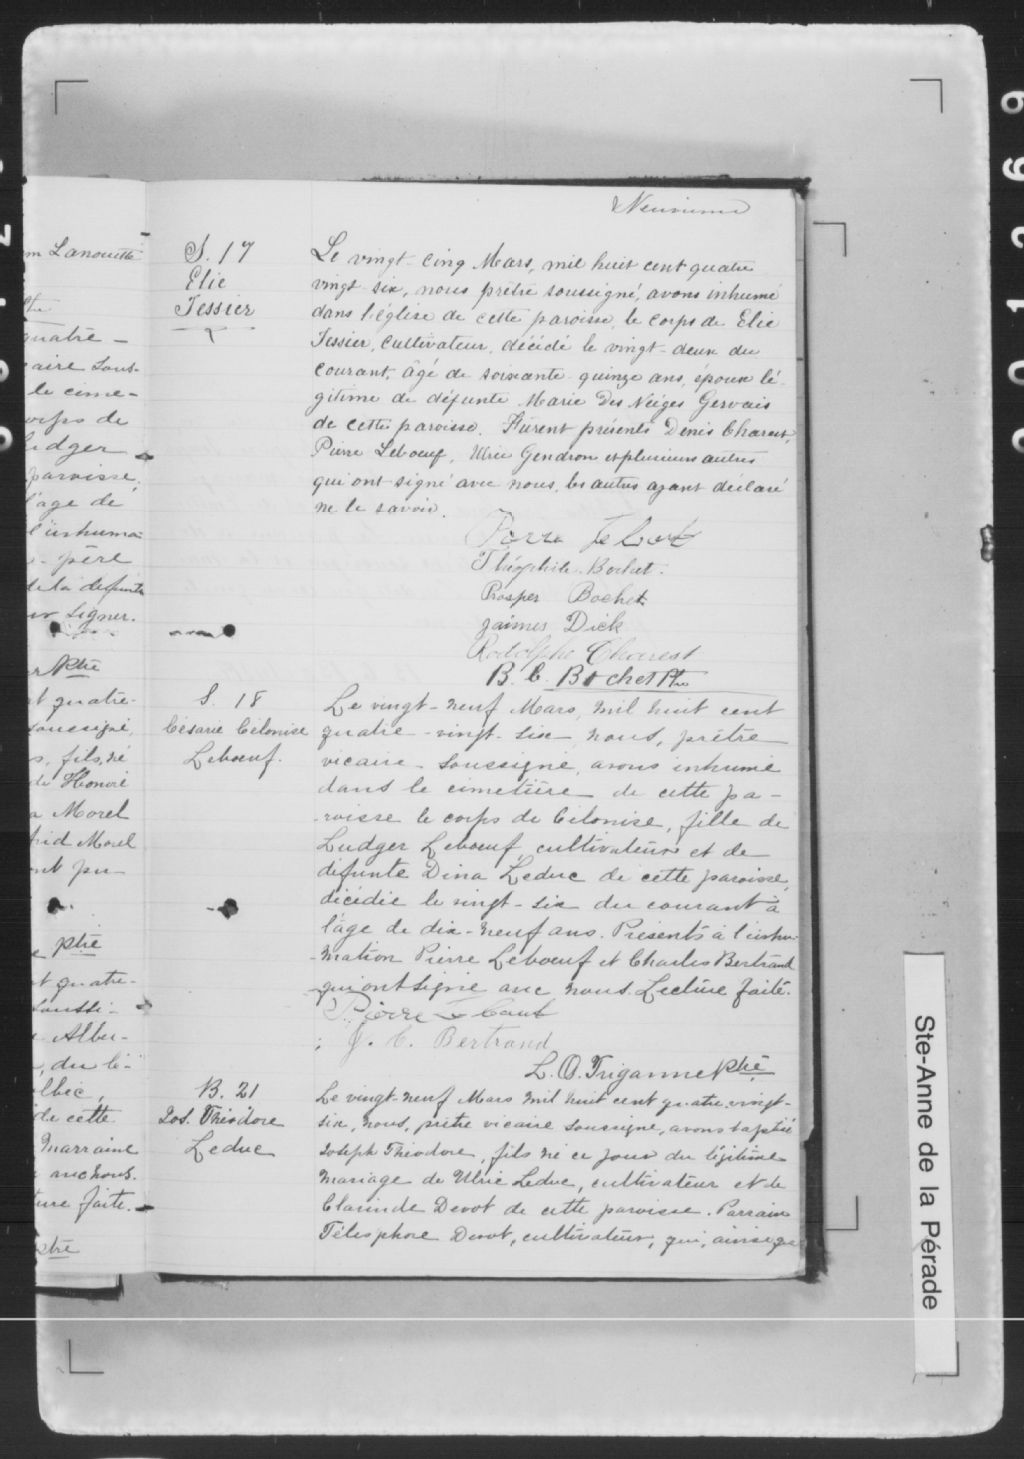 Neuvième
S. 17
Elie
Tessier
Le vingt-cinq Mars, mil huit cent quatre
vingt-six, nous prêtre soussigné, avons inhumé
dans l'église de cette paroisse, le corps de Elie
Tessier, Cultivateur, décédé le vingt-deux du
courant, âgé de soixante-quinze ans, époux lé-
gitime de défunte Marie Des Neiges Gervais
de cette paroisse. Furent présents Denis Charest,
Pierre Leboeuf, Ulric Gendron et plusieurs autres
qui ont signé avec nous, les autres ayant déclaré
ne le savoir.
Théophile Bochet.
Prosper Bochet
jaimes Dick
Rodolphe Charest
B. C. Bochet Ptre
S. 18
Césarie Célonise
Leboeuf.
Le vingt-neuf Mars, mil huit cent
quatre-vingt-six, nous, prêtre
vicaire soussigné, avons inhumé
dans le cimetière de cette pa-
-roisse le corps de Célonise, fille de
Ludger Leboeuf cultivateur et de
défunte Dina Leduc de cette paroisse,
décédée le vingt-six du courant à
l'âge de dix-neuf ans. Présents à l'inhu-
-mation Pierre Leboeuf et Charles Bertrand
qui ont signé avec nous. Lecture faite.
J. C. Bertrand
L. O. Triganne ptre
B. 21
Jos. Théodore
Leduc
Le vingt-neuf Mars mil huit cent quatre-vingt-
six, nous, prêtre vicaire soussigné, avons baptisé
Joseph Théodore, fils né ce jour du légitime
mariage de Ulric Leduc, cultivateur et de
Clarinde Devot de cette paroisse. Parrain
Télesphore Devot, cultivateur, qui, ainsi que
m Lanouette
quatre-
caire sous-
le cime-
corps de
Ludger
paroisse,
l'âge de
l'inhuma-
père
de la défunte
signer.
ptre
quatre-
soussigné,
s, fils, né
de Honoré
a Morel
frid Morel
pu
ptre
t quatre-
soussi-
Albu-
, du lé-
de cette
Marraine
avec nous.
ture faite.
ptre
Ste-Anne de la Pérade